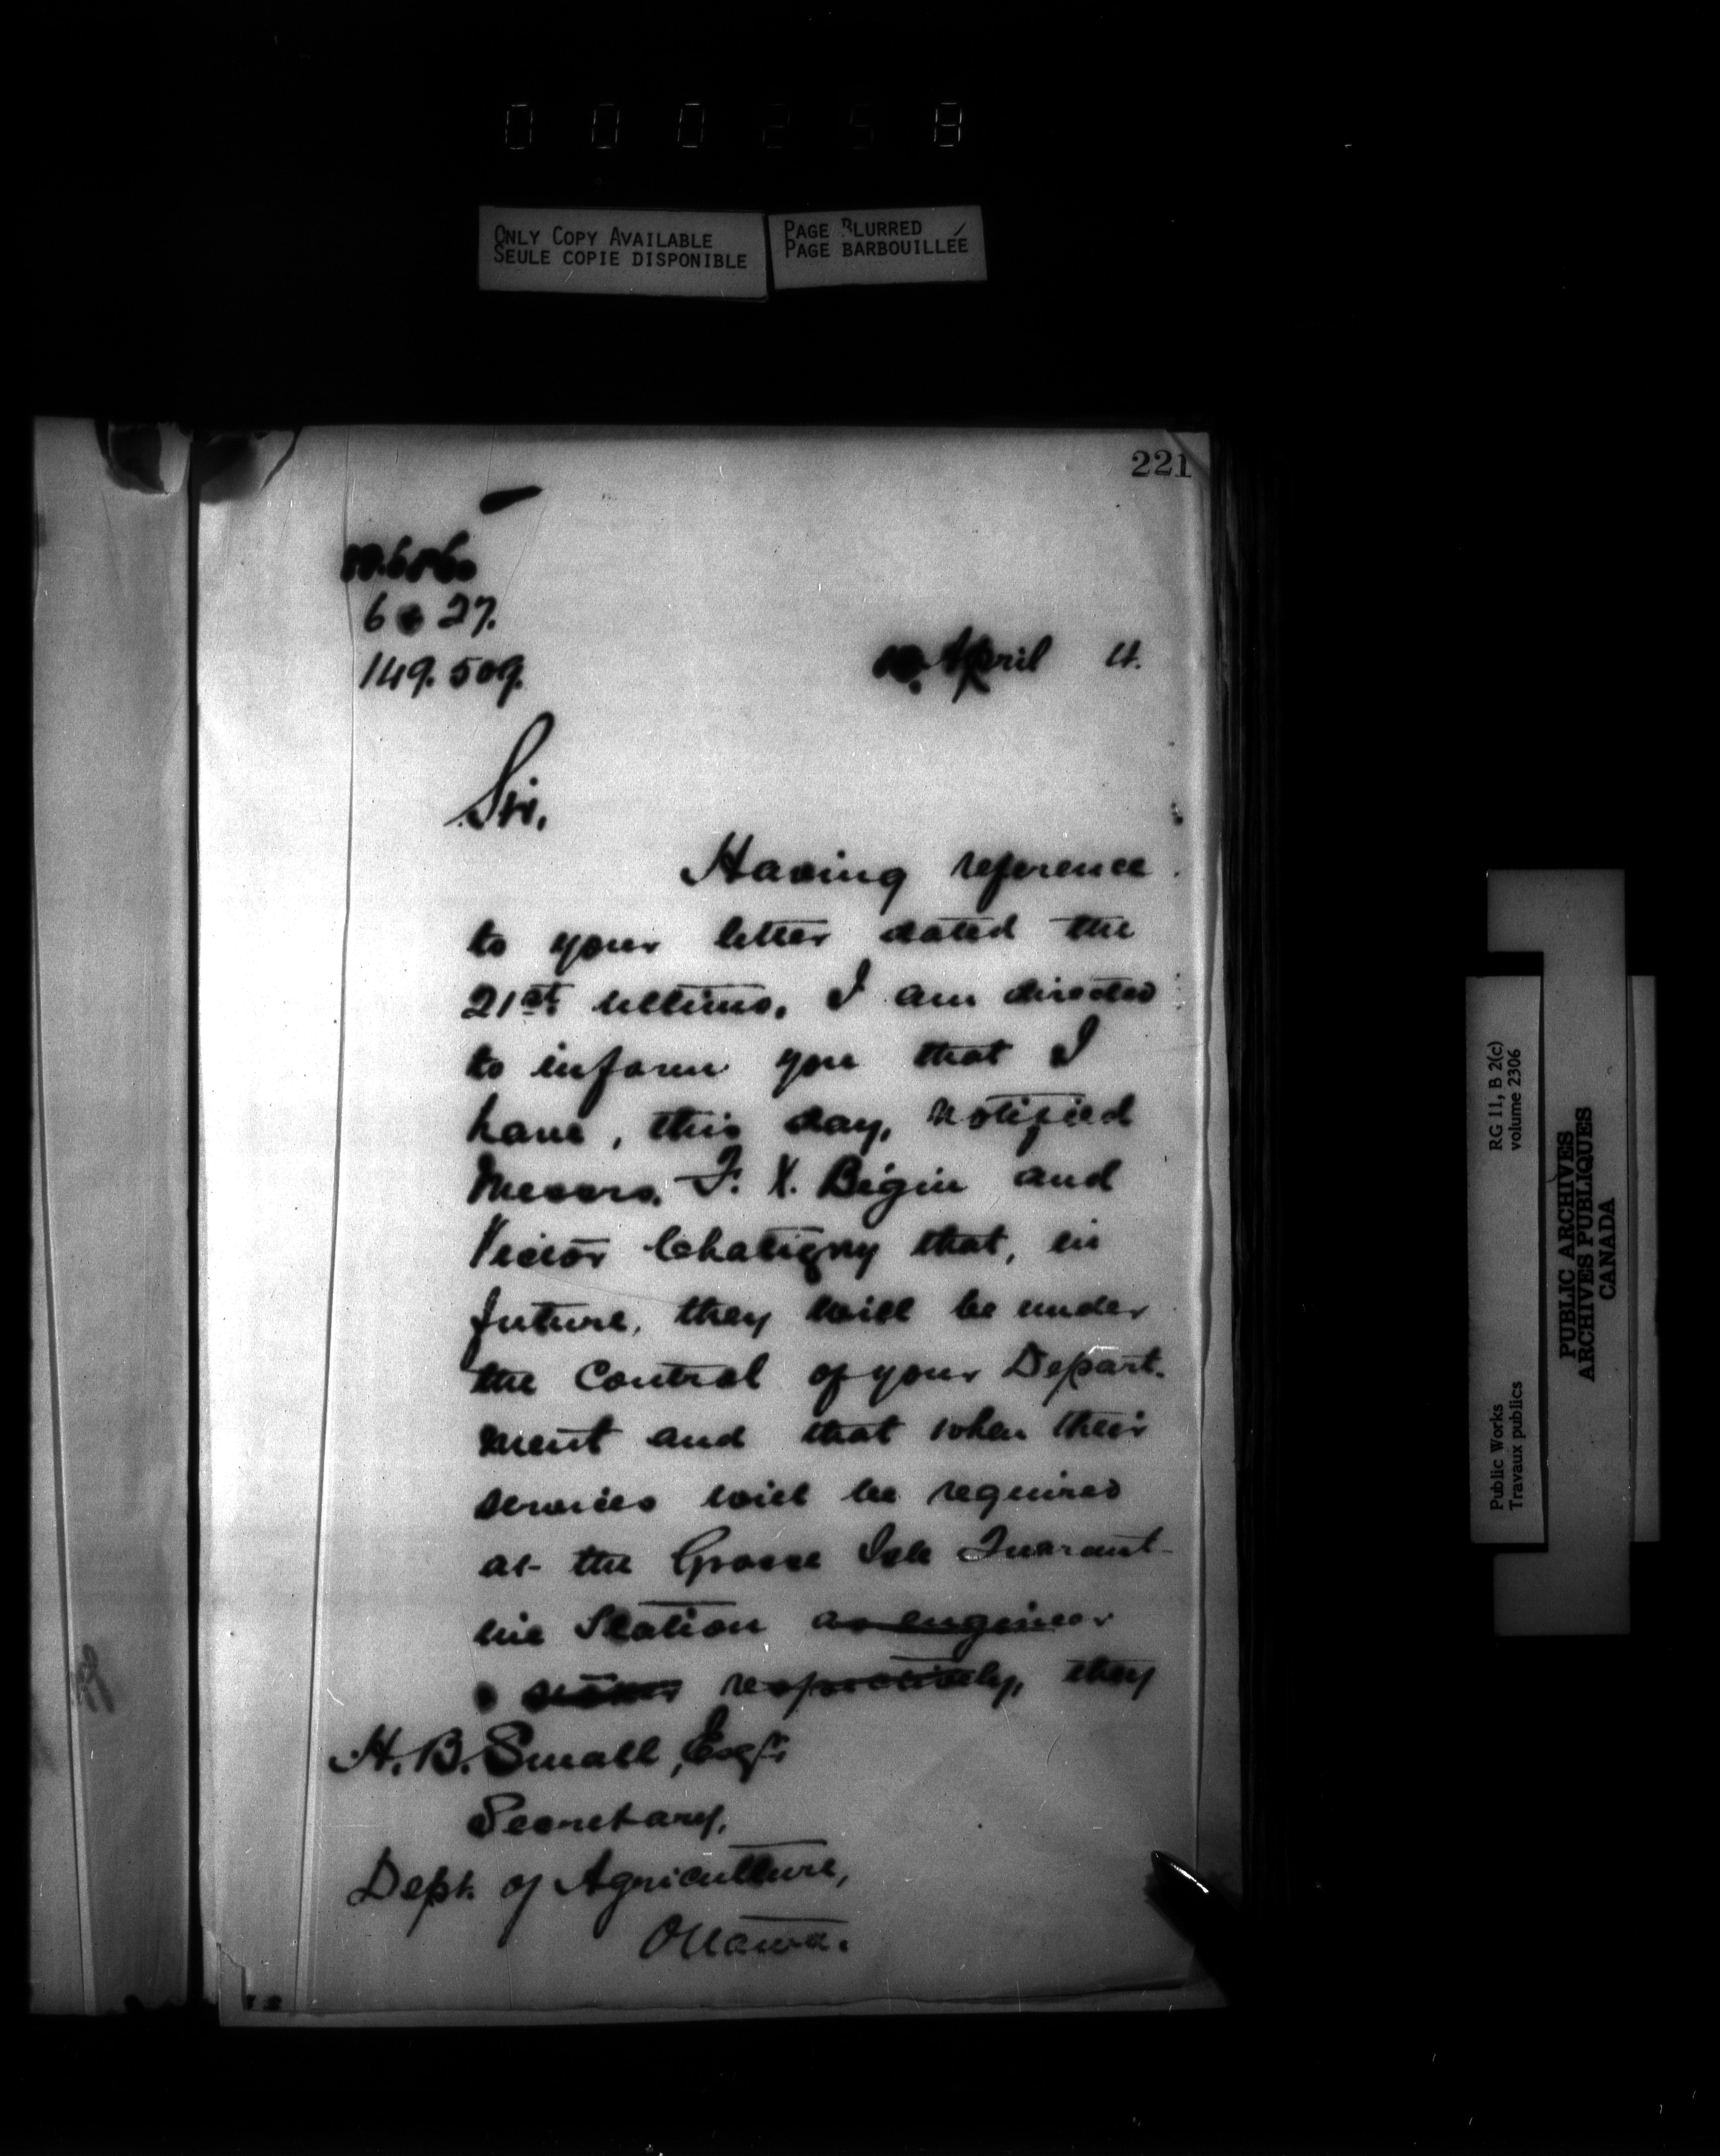 000258
ONLY COPY AVAILABLE
SEULE COPIE DISPONIBLE
PAGE BLURRED
PAGE BARBOUILLÉE
221
6 27.
149.509.
April 4.
Sir,
Having reference
to your letter dated the
21st ultimo, I am directed
to inform you that I
have, this day, notified
Messrs. F. X. Bégin and
Victor Chatigny that, in
future, they will be under
the Control of your Depart-
ment and that when their
services will be required
at the Grosse Isle Quarant-
ine Station as engineer
respectively, they
H. B. Small, Esqr.
Secretary,
Dept. of Agriculture,
Ottawa.
Public Works
Travaux publics
RG 11, B 2(c)
volume 2306
PUBLIC ARCHIVES
ARCHIVES PUBLIQUES
CANADA